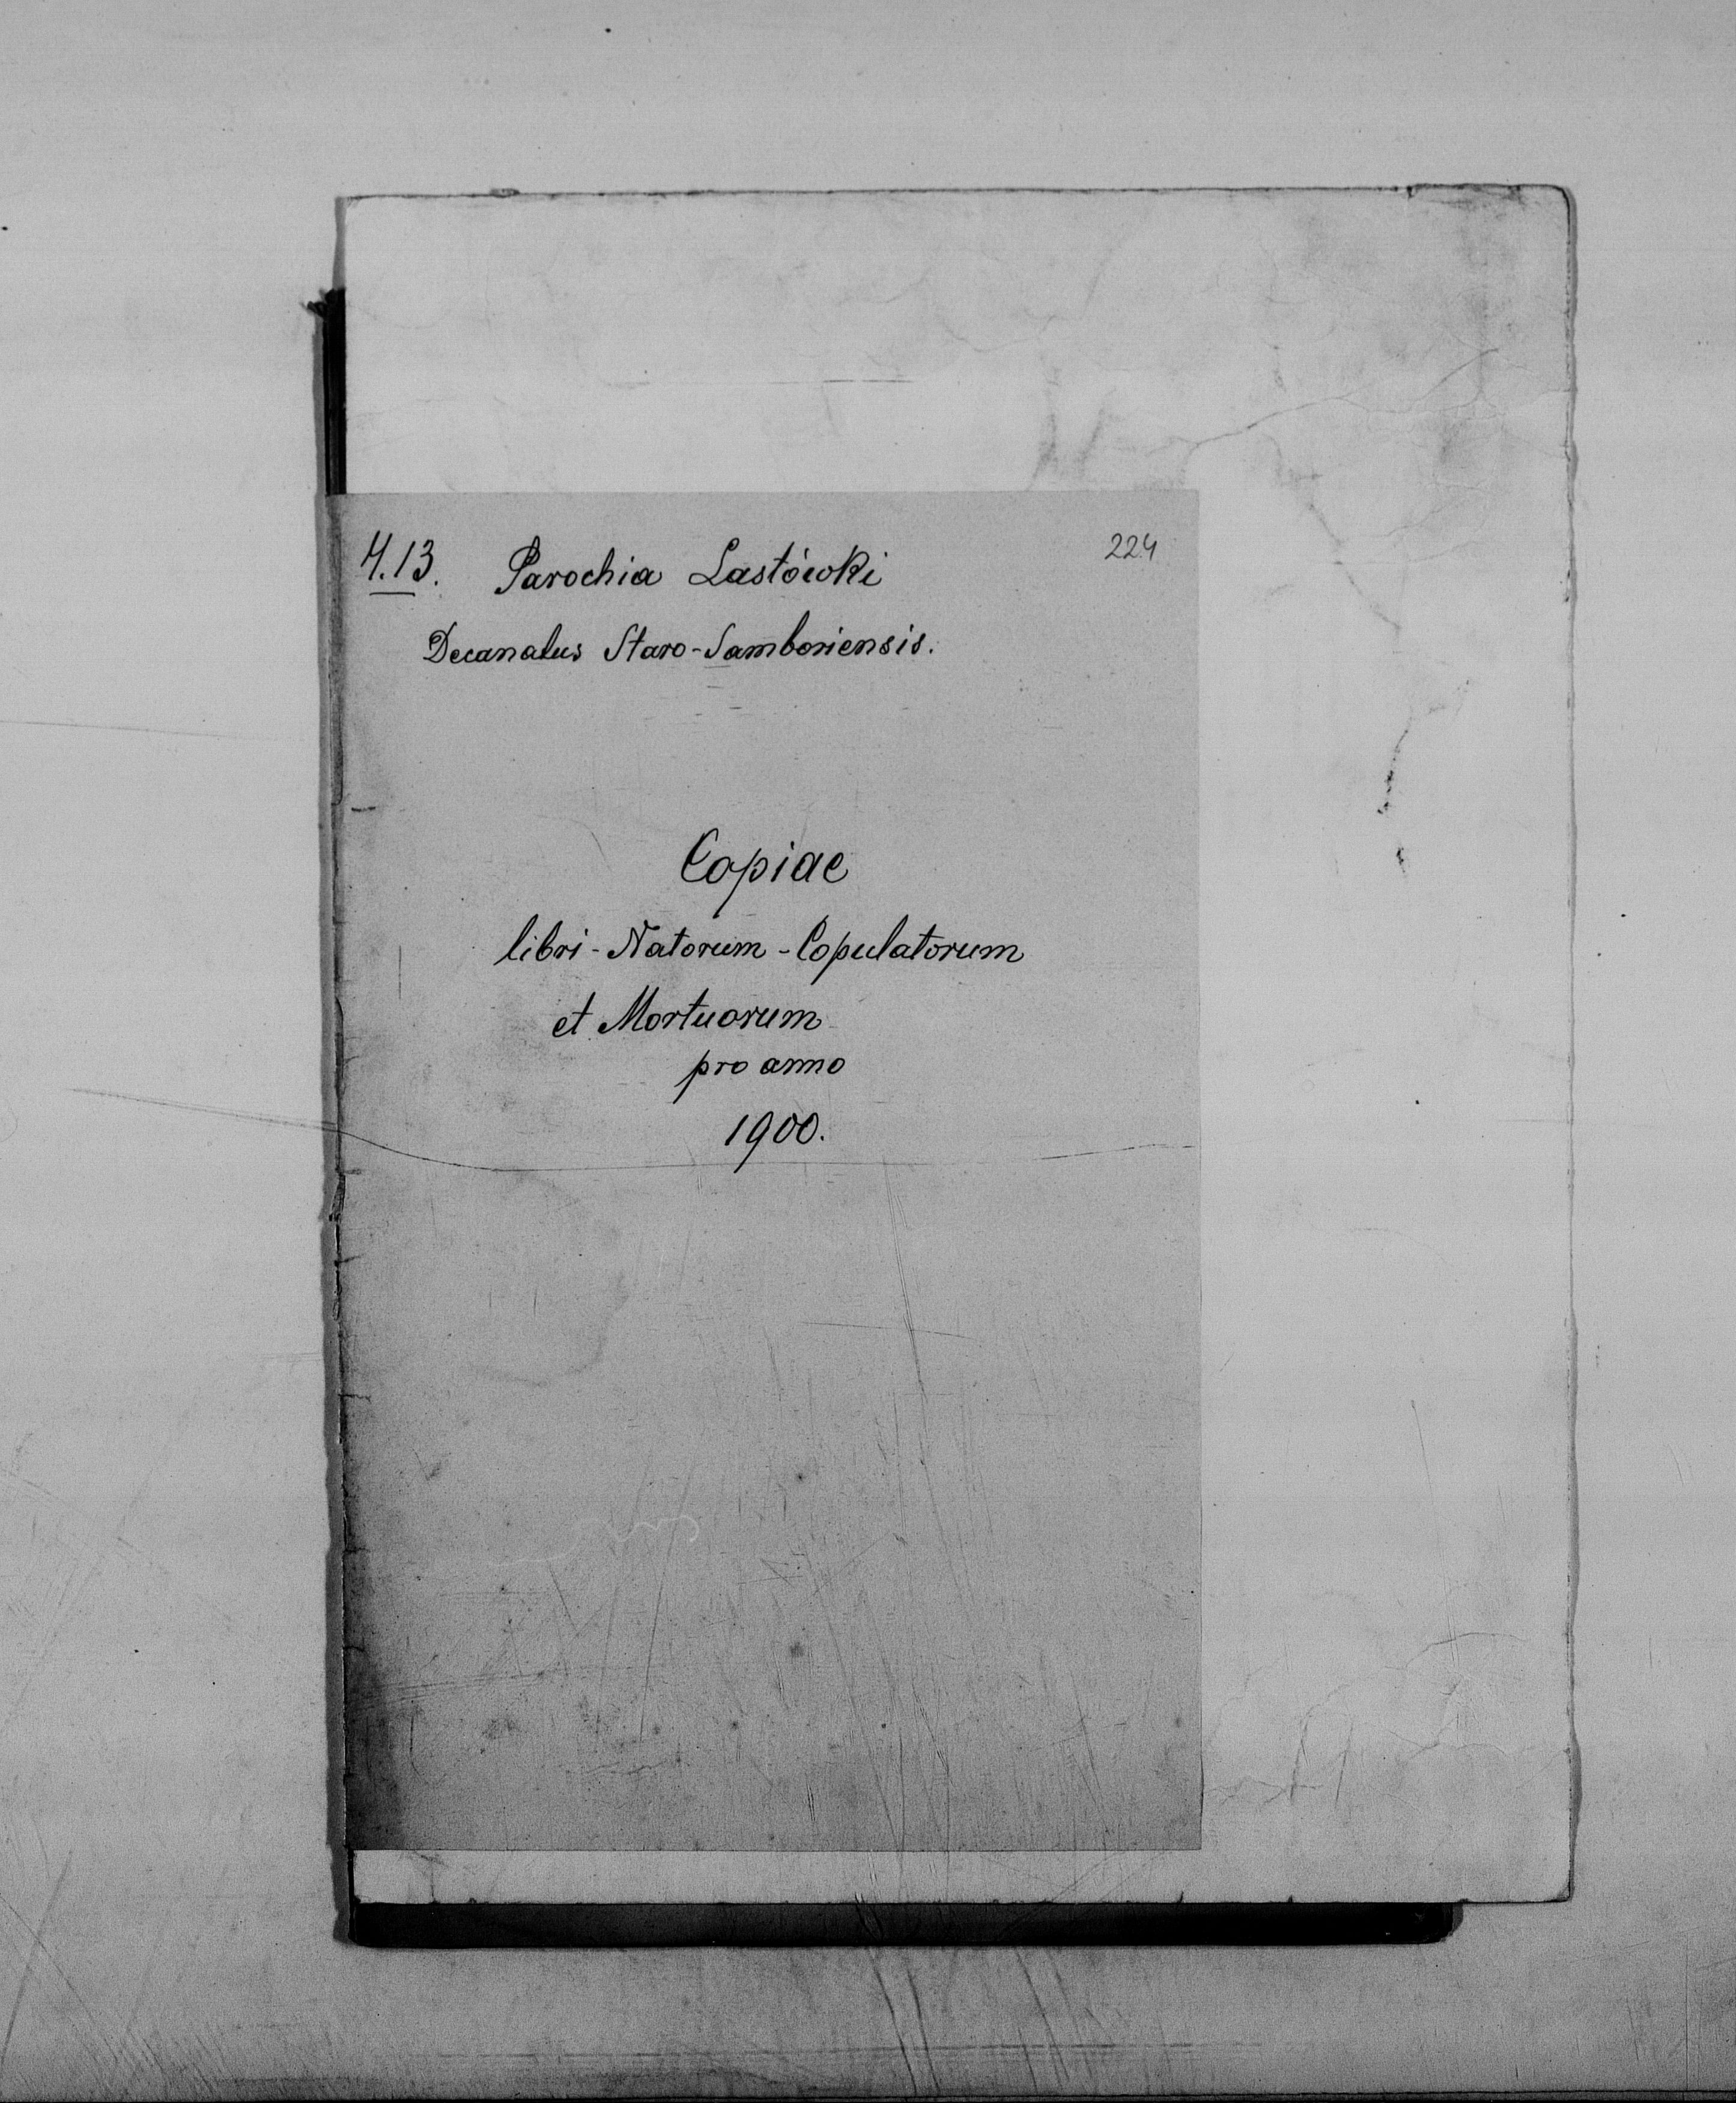 4.13. Parochia Lastówki 224
Decanatus Staro-Samboriensis.
Copiae
libri-Natorum-Copulatorum
et Mortuorum
pro anno
1900.